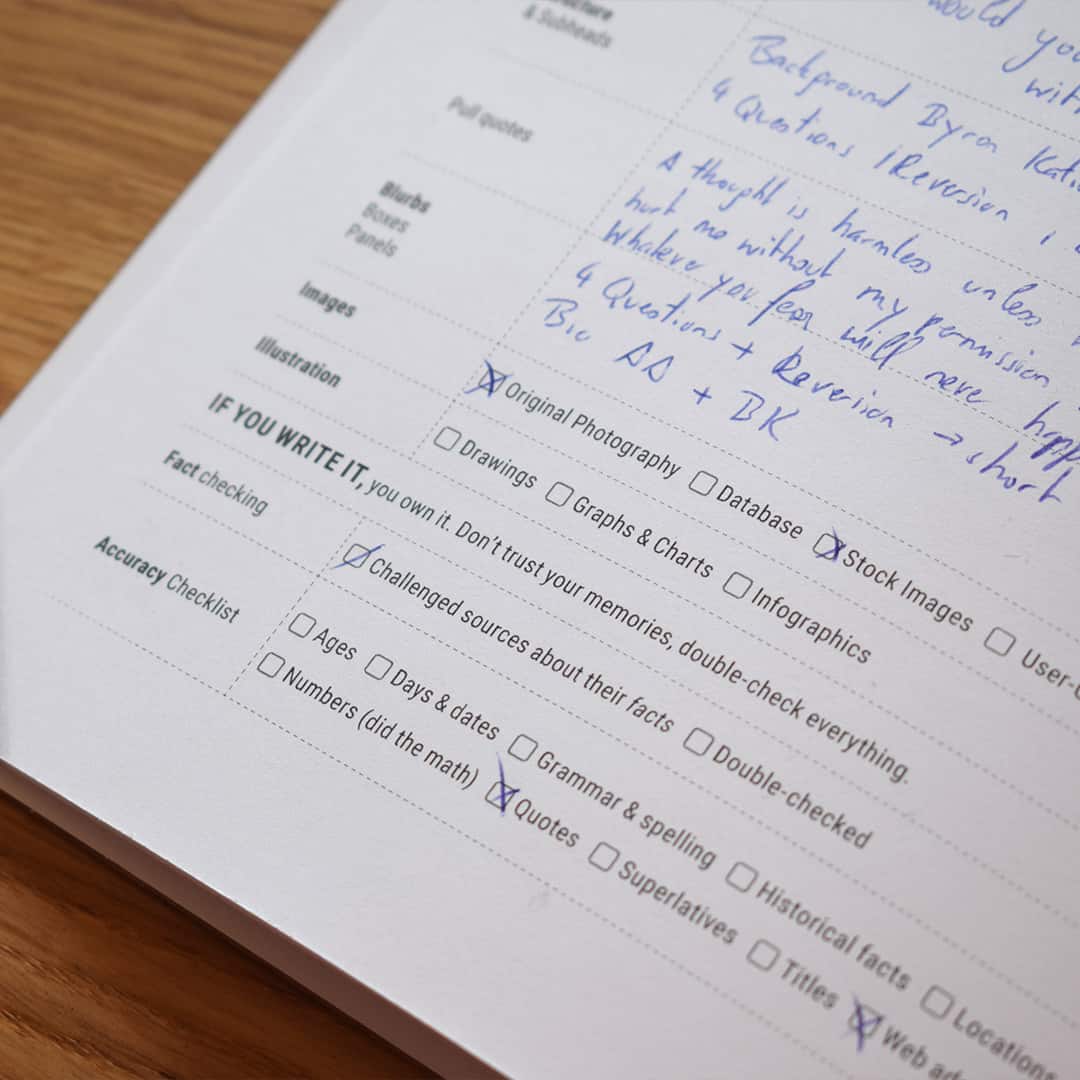 & Subheads
would you
with
Background Byron Katie
4 Questions / Reversion
Pull quotes
A thought is harmless unless
hurt me without my permission
Whatever you fear will never happ
Blurbs
Boxes
Panels
4 Questions + Reversion → short
Bio AA + BK
Images
☒ Original Photography ☐ Database ☒ Stock Images ☐ User-
Illustration
☐ Drawings ☐ Graphs & Charts ☐ Infographics
IF YOU WRITE IT, you own it. Don't trust your memories, double-check everything.
Fact checking
☒ Challenged sources about their facts ☐ Double-checked
Accuracy Checklist
☐ Ages ☐ Days & dates ☐ Grammar & spelling ☐ Historical facts ☐ Locations
☐ Numbers (did the math) ☒ Quotes ☐ Superlatives ☐ Titles ☒ Web ad